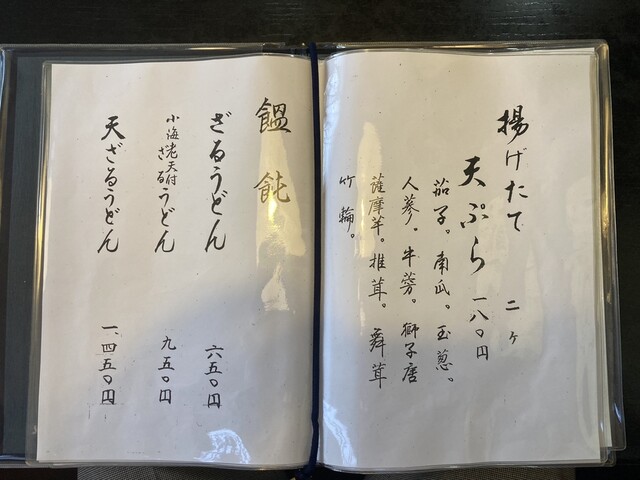 揚げたて 二ヶ
天ぷら 一八〇円
茄子。南瓜。玉葱。
人参。牛蒡。獅子唐
薩摩芋。椎茸。舞茸
竹輪。
饂飩
ざるうどん 六五〇円
小海老天付ざるうどん 九五〇円
天ざるうどん 一、四五〇円